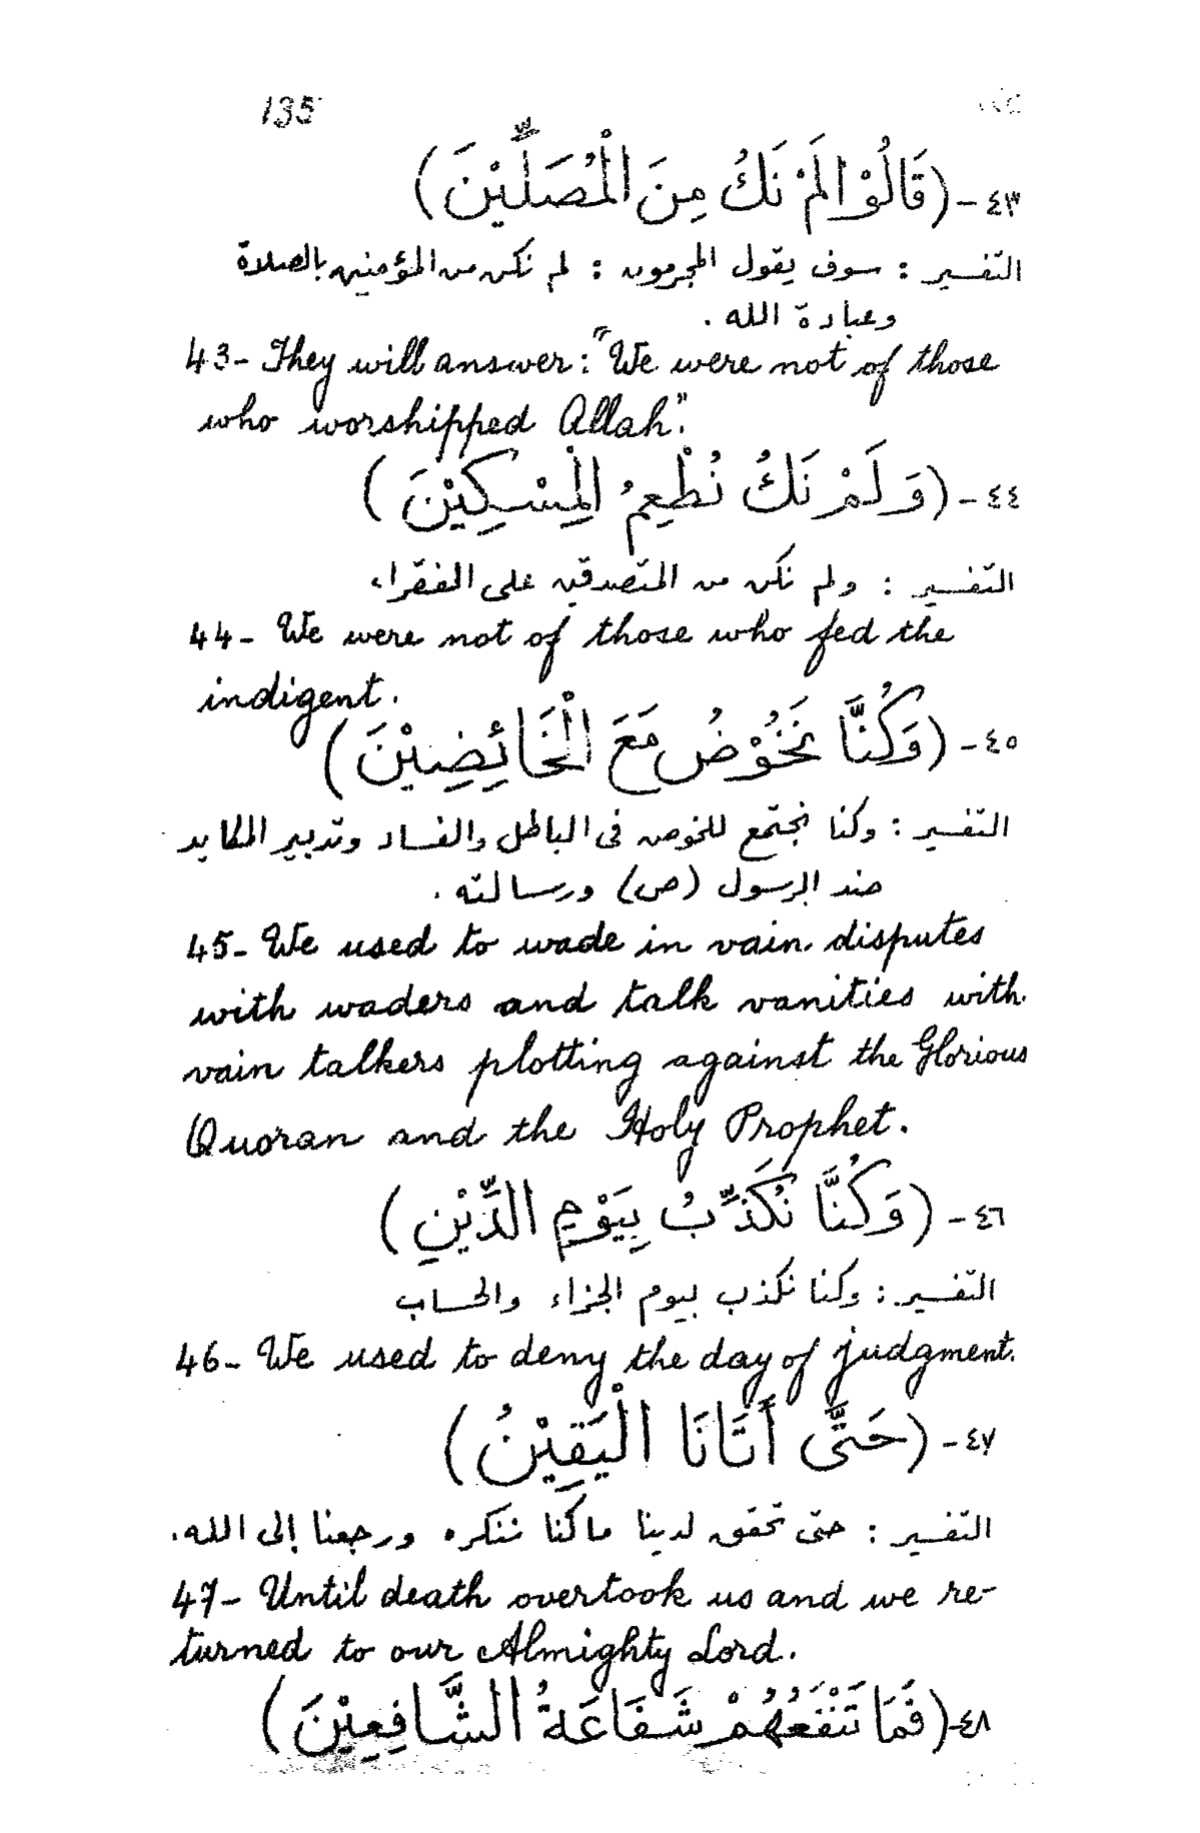 135
٤٣- (قَالُوْا لَمْ نَكُ مِنَ الْمُصَلِّيْنَ)
التفسير : سوف يقول المجرمون : لم نكن من المؤمنين بالصلاة
وعبادة الله .
43- They will answer: "We were not of those
who worshipped Allah".
٤٤- (وَلَمْ نَكُ نُطْعِمُ الْمِسْكِيْنَ)
التفسير : ولم نكن من المتصدقين على الفقراء
44- We were not of those who fed the
indigent.
٤٥- (وَكُنَّا نَخُوْضُ مَعَ الْخَائِضِيْنَ)
التفسير : وكنا نجتمع للخوض فى الباطل والفساد وتدبير المكايد
ضد الرسول (ص) ورسالته .
45- We used to wade in vain disputes
with waders and talk vanities with
vain talkers plotting against the Glorious
Quoran and the Holy Prophet.
٤٦- (وَكُنَّا نُكَذِّبُ بِيَوْمِ الدِّيْنِ)
التفسير : وكنا نكذب بيوم الجزاء والحساب
46- We used to deny the day of judgment.
٤٧- (حَتَّى أَتَانَا الْيَقِيْنُ)
التفسير : حتى تحقق لدينا ما كنا ننكره ورجعنا إلى الله.
47- Until death overtook us and we re-
turned to our Almighty Lord.
٤٨- (فَمَا تَنْفَعُهُمْ شَفَاعَةُ الشَّافِعِيْنَ)